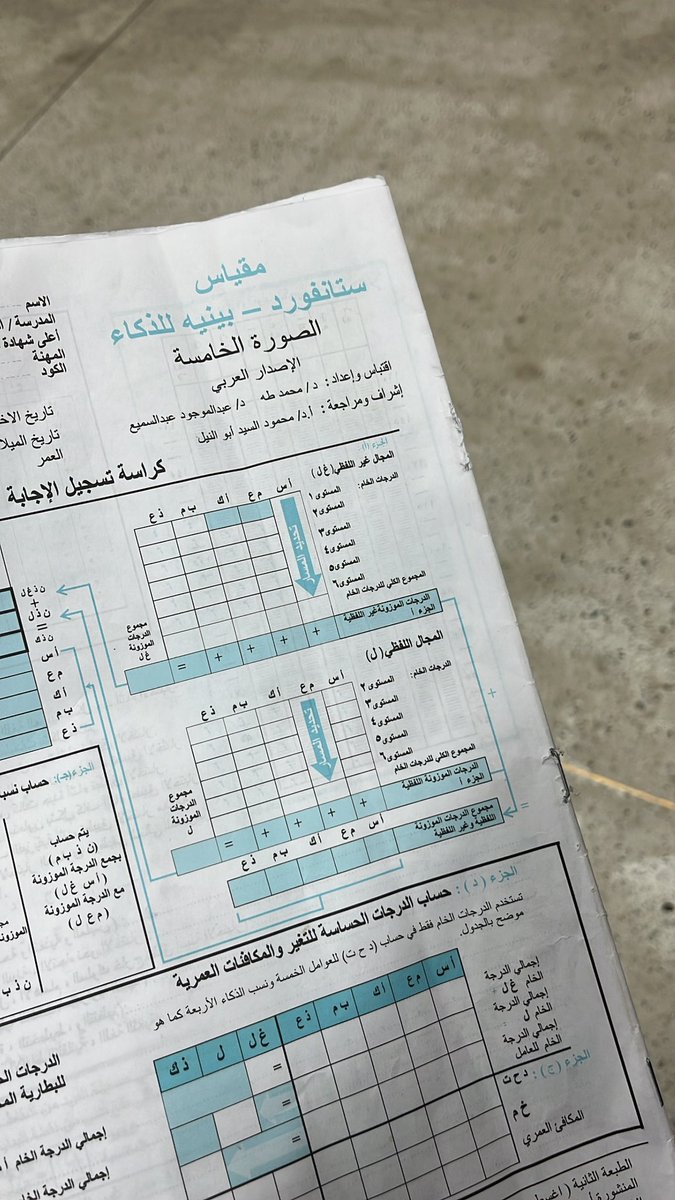 مقياس
ستانفورد – بينيه للذكاء
الصورة الخامسة
الإصدار العربي
اقتباس وإعداد : د/ محمد طه د/ عبدالموجود عبدالسميع
إشراف ومراجعة : أ.د/ محمود السيد أبو النيل
الاسم
المدرسة /
أعلى شهادة
المهنة
الكود
تاريخ
تاريخ
العمر
كراسة تسجيل الإجابة
الجزء (أ)
المجال غير اللفظي (غ ل)
أ س م ع أ ك ب م ذ ع
الدرجات الخام :
المستوى ١
المستوى ٢
المستوى ٣
المستوى ٤
المستوى ٥
المستوى ٦
تحديد المسار
المجموع الكلي للدرجات الخام
الدرجات الموزونة غير اللفظية
الجزء أ
+ + + + =
مجموع
الدرجات
الموزونة
غ ل
المجال اللفظي (ل)
أ س م ع أ ك ب م ذ ع
الدرجات الخام :
المستوى ٢
المستوى ٣
المستوى ٤
المستوى ٥
المستوى ٦
تحديد المسار
المجموع الكلي للدرجات الخام
الدرجات الموزونة اللفظية
الجزء أ
+ + + + =
مجموع
الدرجات
الموزونة
ل
+
=
مجموع الدرجات الموزونة
اللفظية وغير اللفظية
أ س م ع أ ك ب م ذ ع
ن ذ غ ل
+
ن ذ ل
=
ن ذ ك
أ س
م ع
أ ك
ب م
ذ ع
الجزء (جـ) : حساب
يتم حساب
(ن ذ ب م)
بجمع الدرجة الموزونة
(أ س غ ل)
مع الدرجة الموزونة
(م ع ل)
الموزونة
الجزء ( د ) : حساب الدرجات الحساسة للتغير والمكافئات العمرية
تستخدم الدرجات الخام فقط في حساب (د ح ت) للعوامل الخمسة ونسب الذكاء الأربعة كما هو
موضح بالجدول.
أ س م ع أ ك ب م ذ ع غ ل ل ذ ك
إجمالي الدرجة
الخام غ ل
=
إجمالي الدرجة
الخام ل
=
إجمالي الدرجة
الخام للعامل
=
الجزء (ج) :
د ح ت
خ م
المكافئ العمري
الدرجات
للبطارية
إجمالي الدرجة الخام
إجمالي الدرجة الخام
الطبعة الثانية